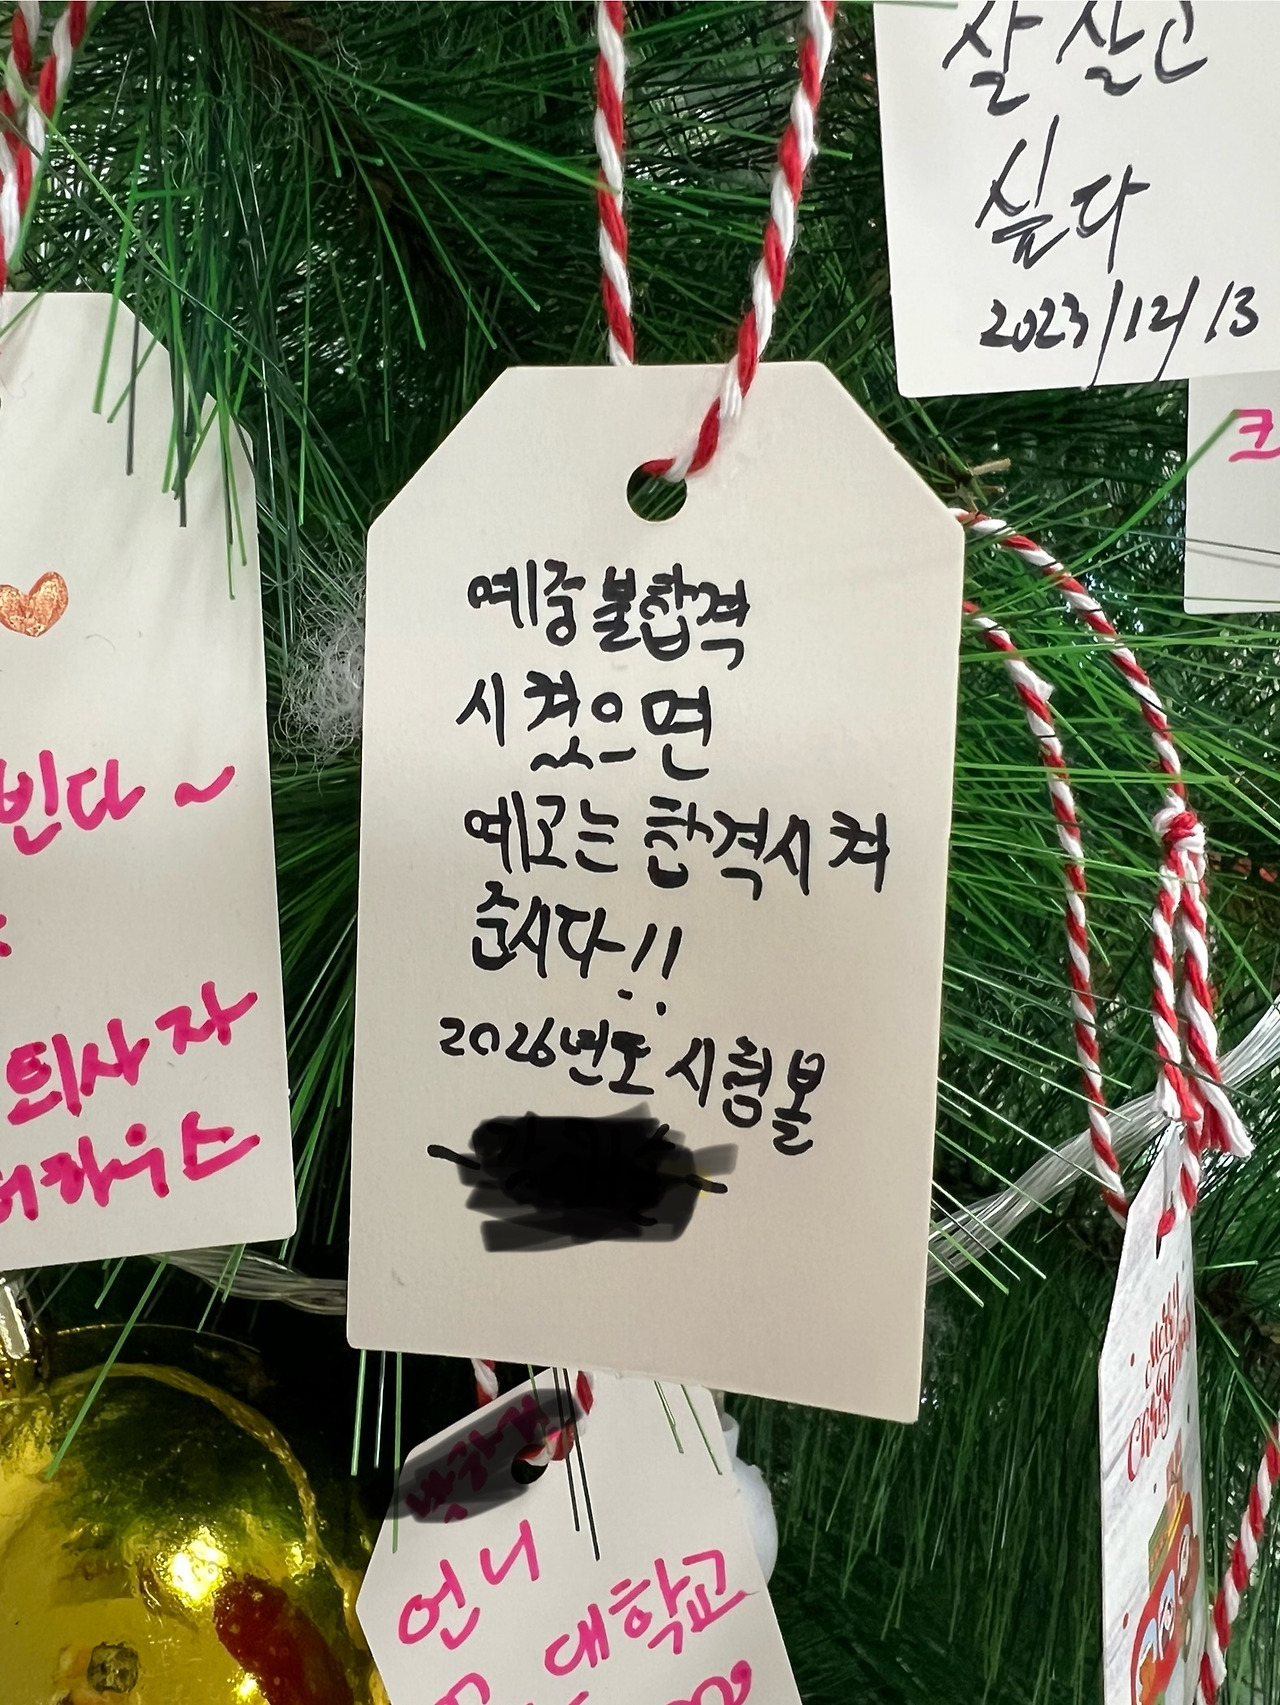 잘 살고
싶다
2023/12/13
예중 불합격
시켰으면
예고는 합격시켜
줍시다!!
2026년도 시험볼
빈다~
퇴사자
하우스
언니
대학교
Merry
Christmas